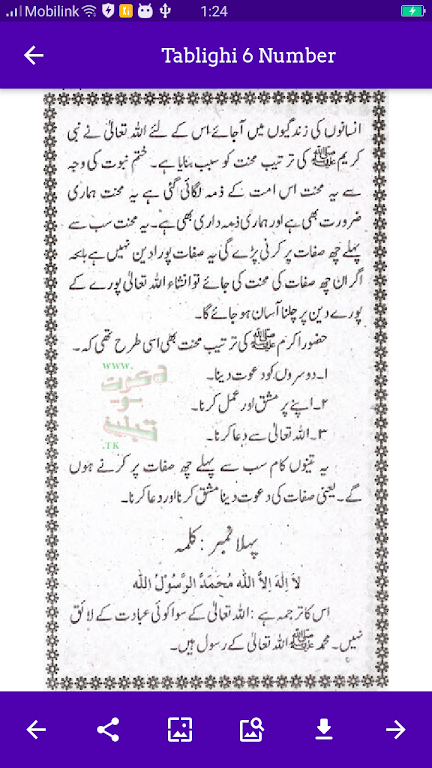 Mobilink
1:24
Tablighi 6 Number
انسانوں کی زندگیوں میں آجائے اس کے لئے اللہ تعالیٰ نے نبی
کریم ﷺ کی ترتیب محنت کو سبب بنایا ہے۔ ختم نبوت کی وجہ
سے یہ محنت اس امت کے ذمہ لگائی گئی ہے یہ محنت ہماری
ضرورت بھی ہے اور ہماری ذمہ داری بھی ہے۔ یہ محنت سب سے
پہلے چھ صفات پر کرنی پڑے گی یہ صفات پورا دین نہیں ہے بلکہ
اگر ان چھ صفات کی محنت کی جائے تو انشاء اللہ تعالیٰ پورے کے
پورے دین پر چلنا آسان ہو جائے گا۔
حضور اکرم ﷺ کی ترتیب محنت بھی اسی طرح تھی کہ۔
۱۔ دوسروں کو دعوت دینا۔
۲۔ اپنے پر مشق اور عمل کرنا۔
۳۔ اللہ تعالیٰ سے دعا کرنا۔
WWW.
دعوت
و
تبلیغ
.TK
یہ تینوں کام سب سے پہلے چھ صفات پر کرنے ہوں
گے۔ یعنی صفات کی دعوت دینا مشق کرنا اور دعا کرنا۔
پہلا نمبر : کلمہ
لَا اِلٰهَ اِلَّا اللّٰه مُحَمَّدُ الرَّسُوْلُ اللّٰه
اس کا ترجمہ ہے : اللہ تعالیٰ کے سوا کوئی عبادت کے لائق
نہیں۔ محمد ﷺ اللہ تعالیٰ کے رسول ہیں۔